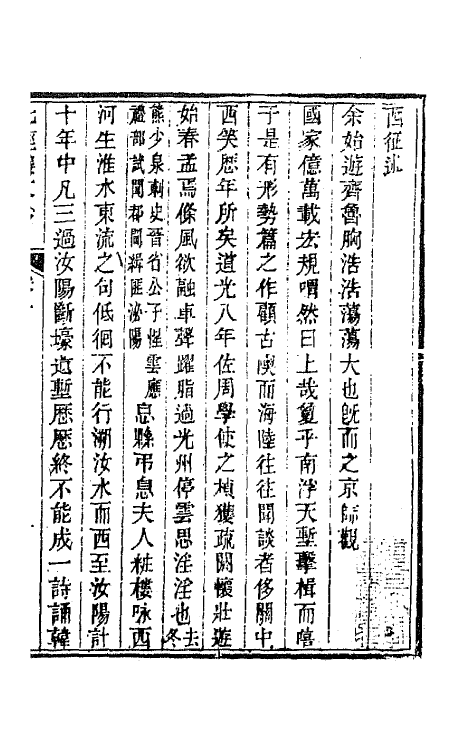 西征述
余始遊齊魯胸浩浩蕩蕩大也既而之京師觀
國家億萬載宏規喟然曰上哉敻乎南浮天塹擊楫而嘻
于是有形勢篇之作顧古奧而海陸往往聞談者侈關中
酉笑歷年所矣道光八年佐周學使之楨獲疏關懷壯遊
始春孟焉條風欲融卓聲躍脂過光州停雲思淫淫也去冬
熊少泉刺史晉省公子惺雲應
禮部試聞都闈緝匪泌陽
息縣弔息夫人粧樓咏西
河生淮水東流之句低徊不能行溯汝水而西至汝陽計
十年中凡三過汝陽斷壕遺塹歷歷終不能成一詩誦韓